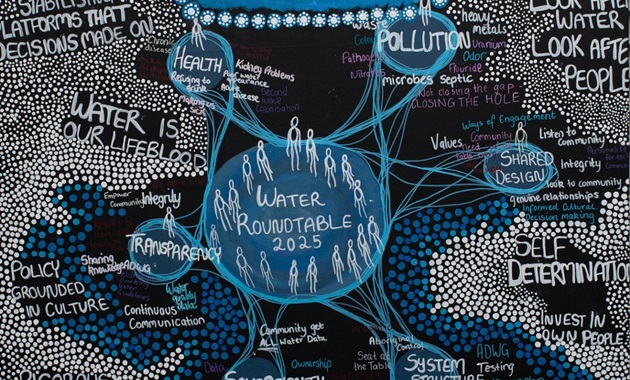 STABILISING
PLATFORMS THAT
DECISIONS MADE ON
LOOK AFTER
WATER
LOOK AFTER
PEOPLE
HEALTH
Chronic
disease
Kidney Problems
Poor water
appearance
Acute
disease
Refusing to
drink
Making us
Second
wave
Colonisation
POLLUTION
Waste
Heavy
metals
Uranium
Odor
Flouride
Pathogens
Nitrates
microbes septic
Not closing the gap
CLOSING THE HOLE
WATER IS
OUR LIFEBLOOD
Ways of Engagement
Values
Community
Listen to
Community
SHARED
DESIGN
Integrity
look to community
genuine relationships
Informed Cultural
Decision making
WATER
ROUNDTABLE
2025
Empower
Community
Integrity
TRANSPARENCY
Sharing
knowledge ADWG
Water
quality
data
Continuous
Communication
POLICY
GROUNDED
IN CULTURE
SELF
DETERMINATION
INVEST IN
OWN PEOPLE
Community get
ALL Water Data
Data
Ownership
SOVEREIGNTY
Aboriginal
Control
Seat at
the Table
SYSTEM
STRUCTURE
ADWG
Testing